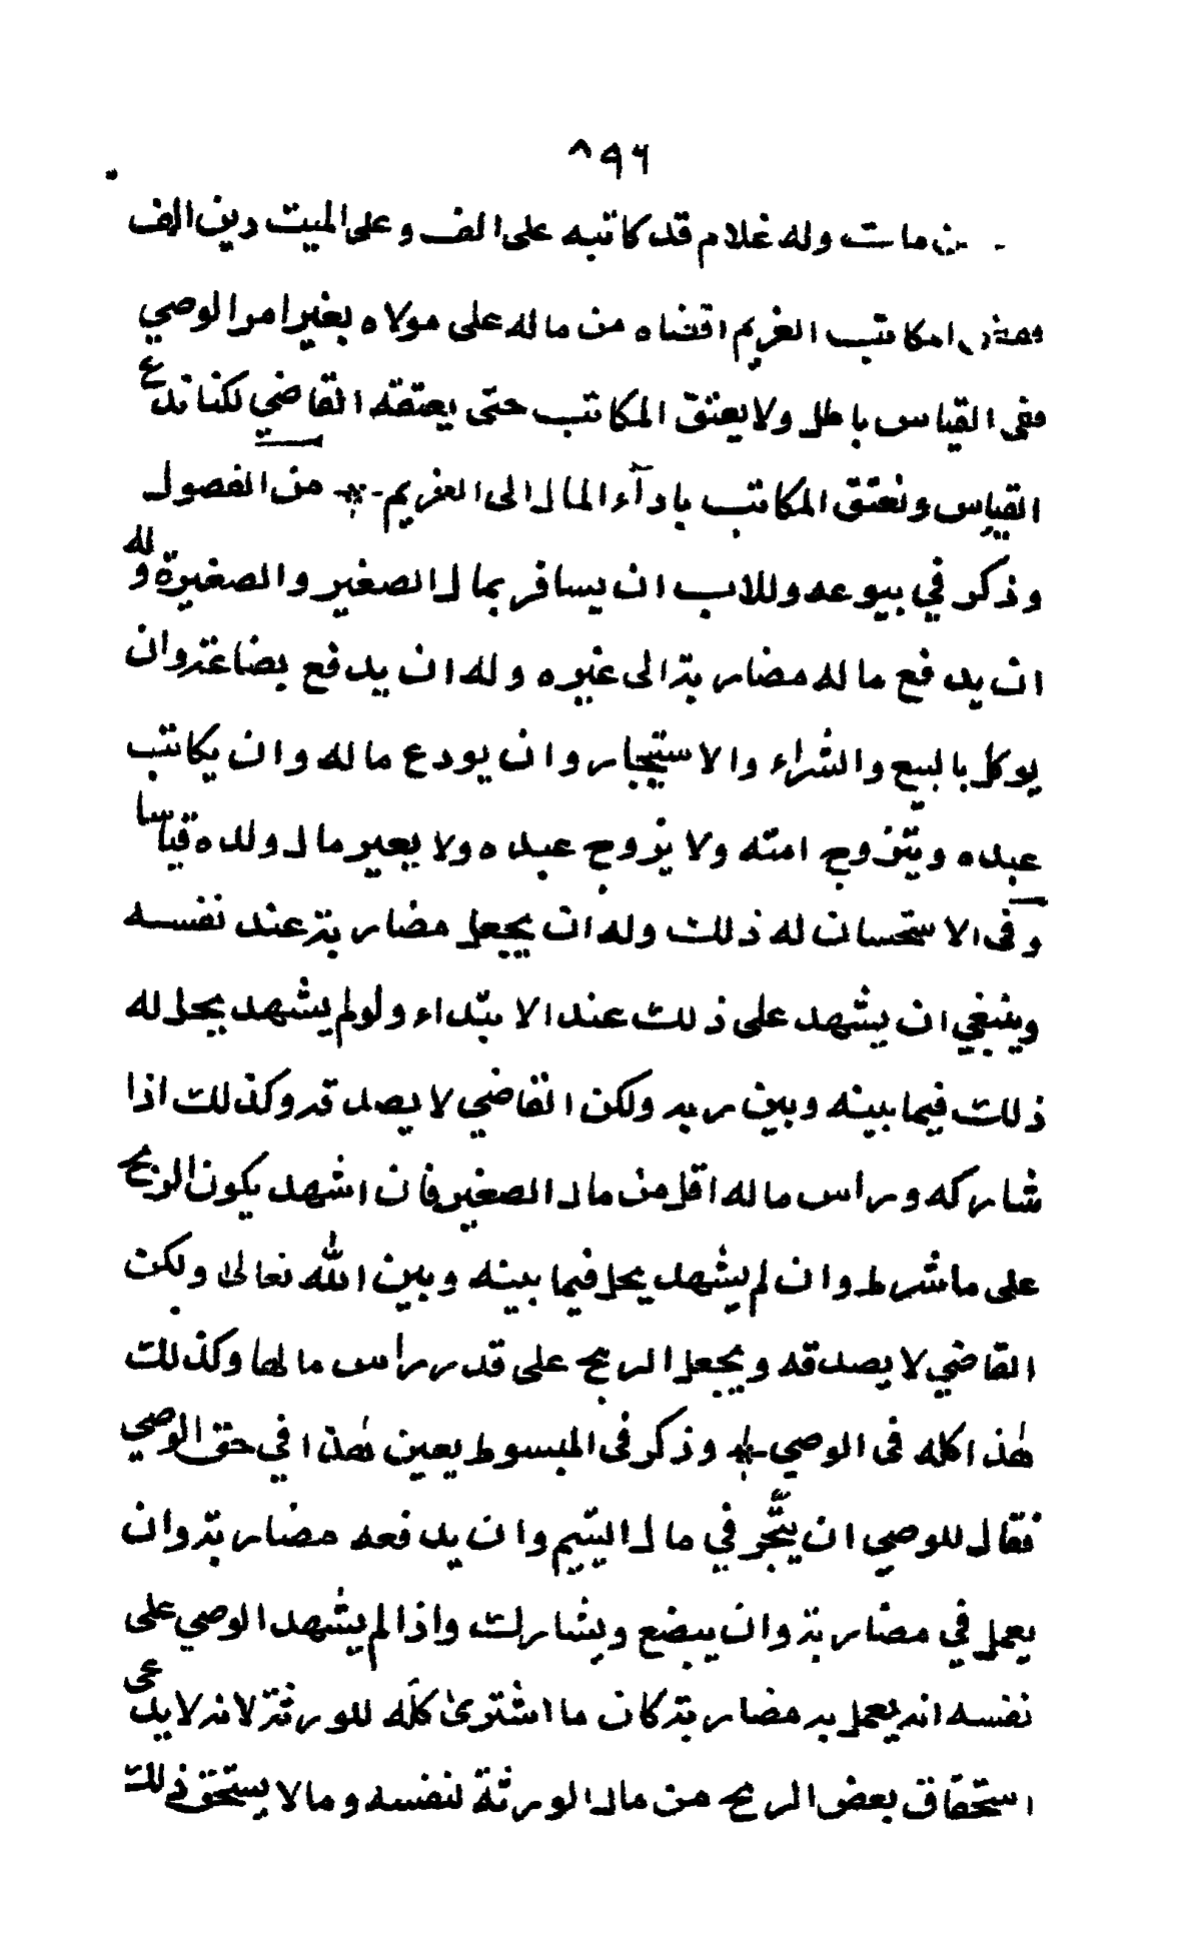 ٨٩٦
من مات وله غلام قد كاتبه على الف وعلى الميت دين الف
فقضى المكاتب الغريم اقضاه من ماله على مولاه بغير امر الوصي
ففى القياس باطل ولا يعتق المكاتب حتى يعتقه القاضي لكنا ندع
القياس ونعتق المكاتب باداء المال الى الغريم من الفصول
وذكر في بيوعه وللاب ان يسافر بمال الصغير والصغيرة وله
ان يدفع ماله مضاربة الى غيره وله ان يدفع بضاعة وان
يوكل بالبيع والشراء والاستيجار وان يودع ماله وان يكاتب
عبده ويتزوج امته ولا يزوج عبده ولا يعير مال ولده قياسا
وفى الاستحسان له ذلك وله ان يجعل مضاربة عند نفسه
وينبغي ان يشهد على ذلك عند الابتداء ولو لم يشهد يحل له
ذلك فيما بينه وبين ربه ولكن القاضي لا يصدقه وكذلك اذا
شاركه ورأس ماله اقل من مال الصغير فان اشهد يكون الربح
على ما شرط وان لم يشهد يحل فيما بينه وبين الله تعالى ولكن
القاضي لا يصدقه ويجعل الربح على قدر رأس مالهما وكذلك
هذا كله فى الوصي وذكر فى المبسوط بعين هذا في حق الوصي
فقال للوصي ان يتّجر في مال اليتيم وان يدفعه مضاربة وان
يعمل في مضاربة وان يبضع ويشارك واذا لم يشهد الوصي على
نفسه انه يعمل به مضاربة كان ما اشترى كلّه للورثة لانه لا يدعى
استحقاق بعض الربح من مال الورثة لنفسه وما لا يستحق ذلك